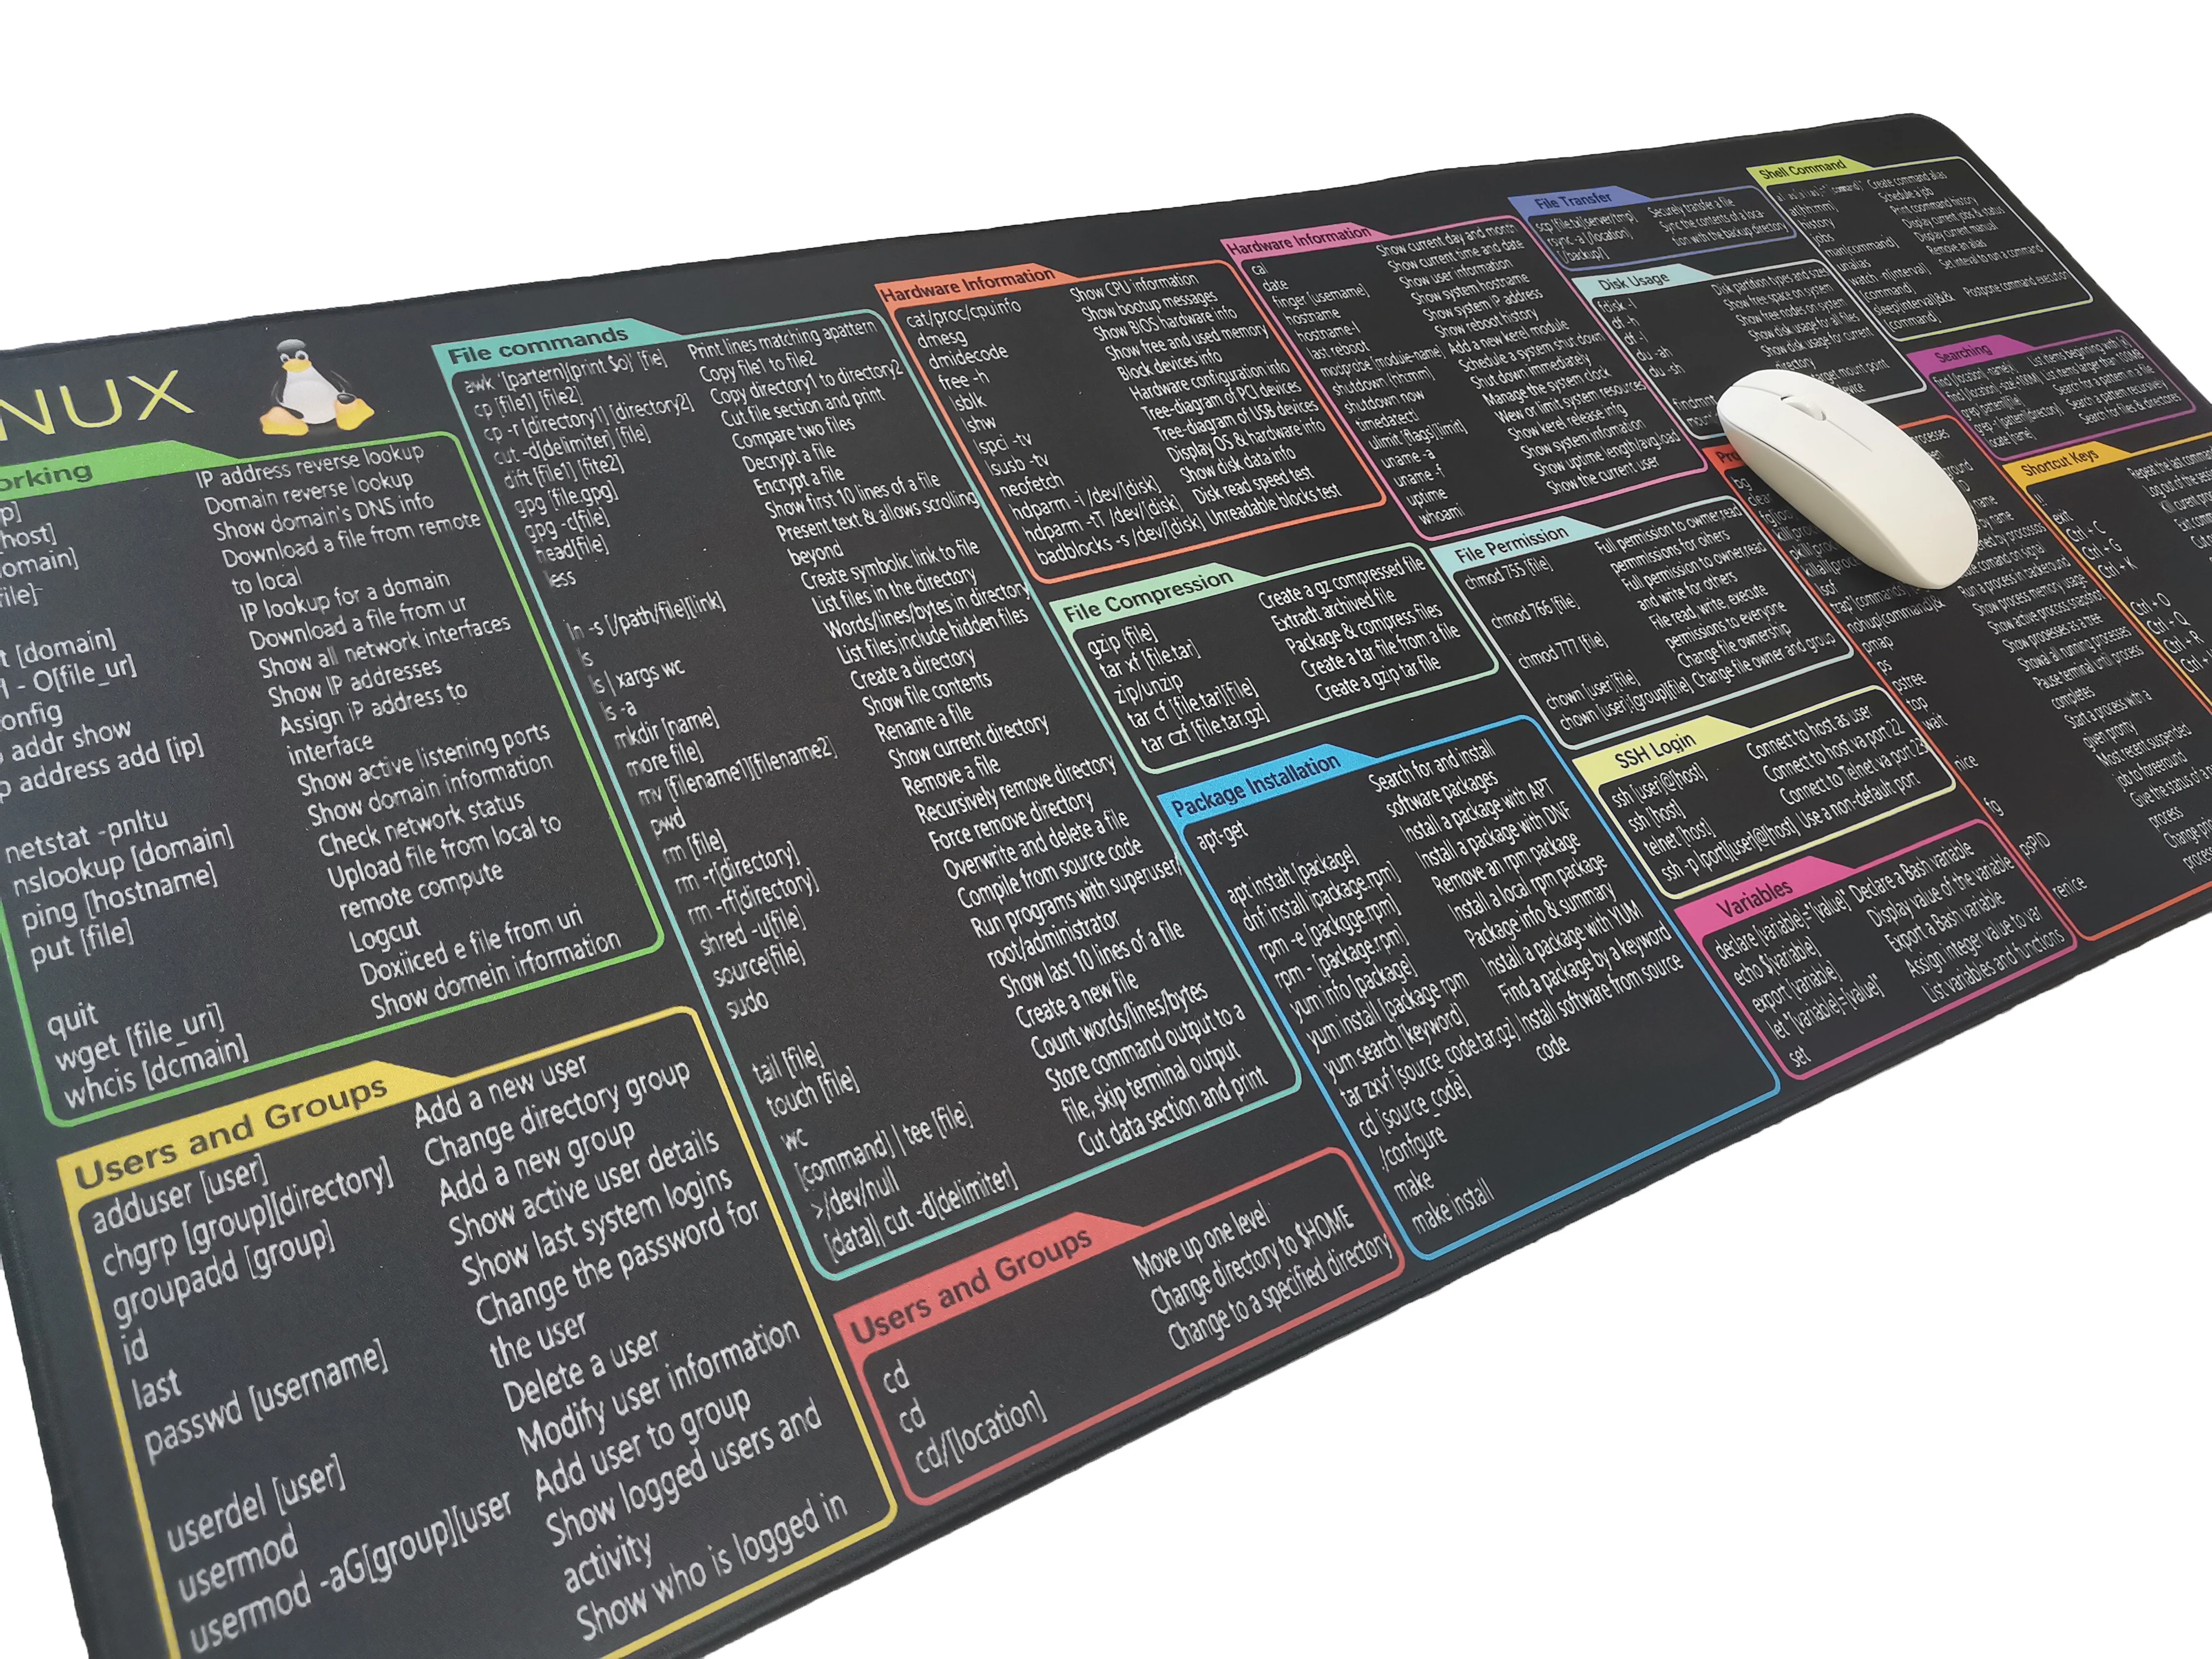 NUX
orking
p]
host]
omain]
file]
t [domain]
- O[file_ur]
onfig
addr show
p address add [ip]
netstat -pnltu
nslookup [domain]
ping [hostname]
put [file]
quit
wget [file_uri]
whcis [dcmain]
IP address reverse lookup
Domain reverse lookup
Show domain's DNS info
Download a file from remote
to local
IP lookup for a domain
Download a file from ur
Show all network interfaces
Show IP addresses
Assign iP address to
interface
Show active listening ports
Show domain information
Check network status
Upload file from local to
remote compute
Logcut
Doxiiced e file from uri
Show domein irformation
Users and Groups
adduser [user]
chgrp [group][directory]
groupadd [group]
id
last
passwd [username]
userdel [user]
usermod
usermod -aG[group][user
Add a new user
Change directory group
Add a new group
Show active user details
Show last system logins
Change the password for
the user
Delete a user
Modify user information
Add user to group
Show logged users and
activity
Show who is logged in
File commands
awk '[partern](print $o)' [fie]
cp [file1] [file2]
cp -r [directory1] [directory2]
cut -d[delimiter] [file]
dift [file1] [fite2]
gpg [file.gpg]
gpg -c[file]
head[file]
less
ln -s [/path/file][link]
ls
ls | xargs wc
ls -a
mkdir [name]
more file]
mv [filename1][filename2]
pwd
rm [file]
rm -r[directory]
rm -rf[directory]
shred -u[file]
source[file]
sudo
tail [file]
touch [file]
wc
[command] | tee [file]
>/dev/null
[data]| cut -d[delimiter]
Print lines matching apattern
Copy file1 to file2
Copy directory1 to directory2
Cut file section and print
Compare two files
Decrypt a file
Encrypt a file
Show first 10 lines of a file
Present text & allows scrolling
beyond
Create symbolic link to file
List files in the directory
Words/lines/bytes in directory
List files,include hidden files
Create a directory
Show file contents
Rename a file
Show current directory
Remove a file
Recursively remove directory
Force remove directory
Overwrite and delete a file
Compile from source code
Run programs with superuser/
root/administrator
Show last 10 lines of a file
Create a new file
Count words/lines/bytes
Store command output to a
file, skip terminal output
Cut data section and print
Users and Groups
cd
cd
cd/[location]
Move up one level
Change directory to $HOME
Change to a specified directory
Hardware Information
cat/proc/cpuinfo
dmesg
dmidecode
free -h
lsblk
lshw
lspci -tv
lsusb -tv
neofetch
hdparm -i /dev/[disk]
hdparm -tT /dev/[disk]
badblocks -s /dev/[disk]
Show CPU information
Show bootup messages
Show BIOS hardware info
Show free and used memory
Block devices info
Hardware configuration info
Tree-diagram of PCI devices
Tree-diagram of USB devices
Display OS & hardware info
Show disk data info
Disk read speed test
Unreadable blocks test
File Compression
gzip [file]
tar xf [file.tar]
zip/unzip
tar cf [file.tar][file]
tar czf [file.tar.gz]
Create a gz compressed file
Extradt archived file
Package & compress files
Create a tar file from a file
Create a gzip tar file
Package Installation
apt-get
apt instalt [package]
dnf install [package.rpm]
rpm -e [packgge.rpm]
rpm - [package.rpm]
yum info [package]
yum install [package rpm
yum search [keyword]
tar zxvf [source_code.tar.gz]
cd [source_code]
./confgure
make
make install
Search for and install
software packages
Install a package with APT
Install a package with DNF
Remove an rpm package
Install a local rpm package
Package info & summary
Install a package with YUM
Find a package by a keyword
Install software from source
code
Hardware Information
cal
date
finger [username]
hostname
hostname-I
last reboot
modprobe [module-name]
shutdown (hh:mm]
shutdown now
timedatectl
ulimit [flags][limit]
uname -a
uname -f
uptime
whoami
Show current day and month
Show current time and date
Show user information
Show system hostname
Show system IP address
Show reboot history
Add a new kerel module
Schedule a system shut down
Shut down immediately
Manage the system clock
Wew or limit system resources
Show kerel release infg
Show system infomation
Show uptime length/avg.load
Show the current user
File Permission
chmod 755 [file]
chmod 766 [file]
chmod 777 [file]
chown [user[file]
chown [user]:[group][file]
Full permission to owner,read
permissions for others
Full permission to owner,read
and write for others
File read, write, execute
permissions to everyone
Change file ownership
Change file owner and group
SSH Login
ssh [user]@[host]
ssh [host]
telnet [host]
ssh -p [port][user]@[host]
Connect to host as user
Connect to host va port 22
Connect to Telnet va port 23
Use a non-default port
Variables
declare [variable]="[value]"
echo $[variable]
export [variable]
let "[variable]=[value]"
set
Declare a Bash variable
Display value of the variable
Export a Bash variable
Assign integer value to var
List variables and functions
File Transfer
scp [file.ta][server/tmp]
rsync -a [/location]
[/backup/]
Securely transfer a file
Sync the contents of a loca-
tion with the backup directory
Disk Usage
fdisk -l
df -h
df -l
du -ah
du -sh
findmn
Disk partition types and sizes
Show free space on system
Show free nodes on system
Show disk usage for all files
Show disk usage for current
directory
target mount point
Shell Command
at[hh:mm]
history
jobs
man[command]
unalias
watch -n[interval]
[command]
sleep[interval]&&
[command]
Create command alias
Schedule a job
Print command history
Display current jobs & status
Display current manual
Remove an alias
Set inteval to run a command
Postpone command execution
Searching
Search for a pattern in a file
Search a pattern recursively
Search for files & directories
Shortcut Keys
!!
exit
Ctrl + C
Ctrl + G
Ctrl + K
Ctrl + O
Ctrl + Q
Ctrl + R
pmap
ps
pstree
top
wait
nice
fg
renice
Run a process in backeround
Show process memory usage
Show active process snapshot
Show proesses as a tree
Showal all running processes
Pause terminal until process
completes
Start a process with a
given pronty
Most recent suspended
process